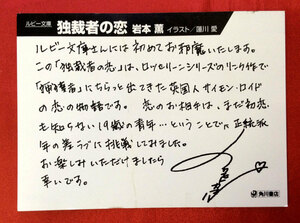 ルビー文庫 独裁者の恋 岩本 薫 イラスト／蓮川 愛
ルビー文庫さんには初めてお邪魔いたします。
この「独裁者の恋」は、ロッセリーニシリーズのリンク作で
「捕獲者」にちらっと出てきた英国人サイモン・ロイド
の恋の物語です。恋のお相手は、まだ初恋
も知らない19歳の青年…ということで、正統派
年の差ラブに挑戦してみました。
お楽しみいただけましたら
幸いです。
角川書店